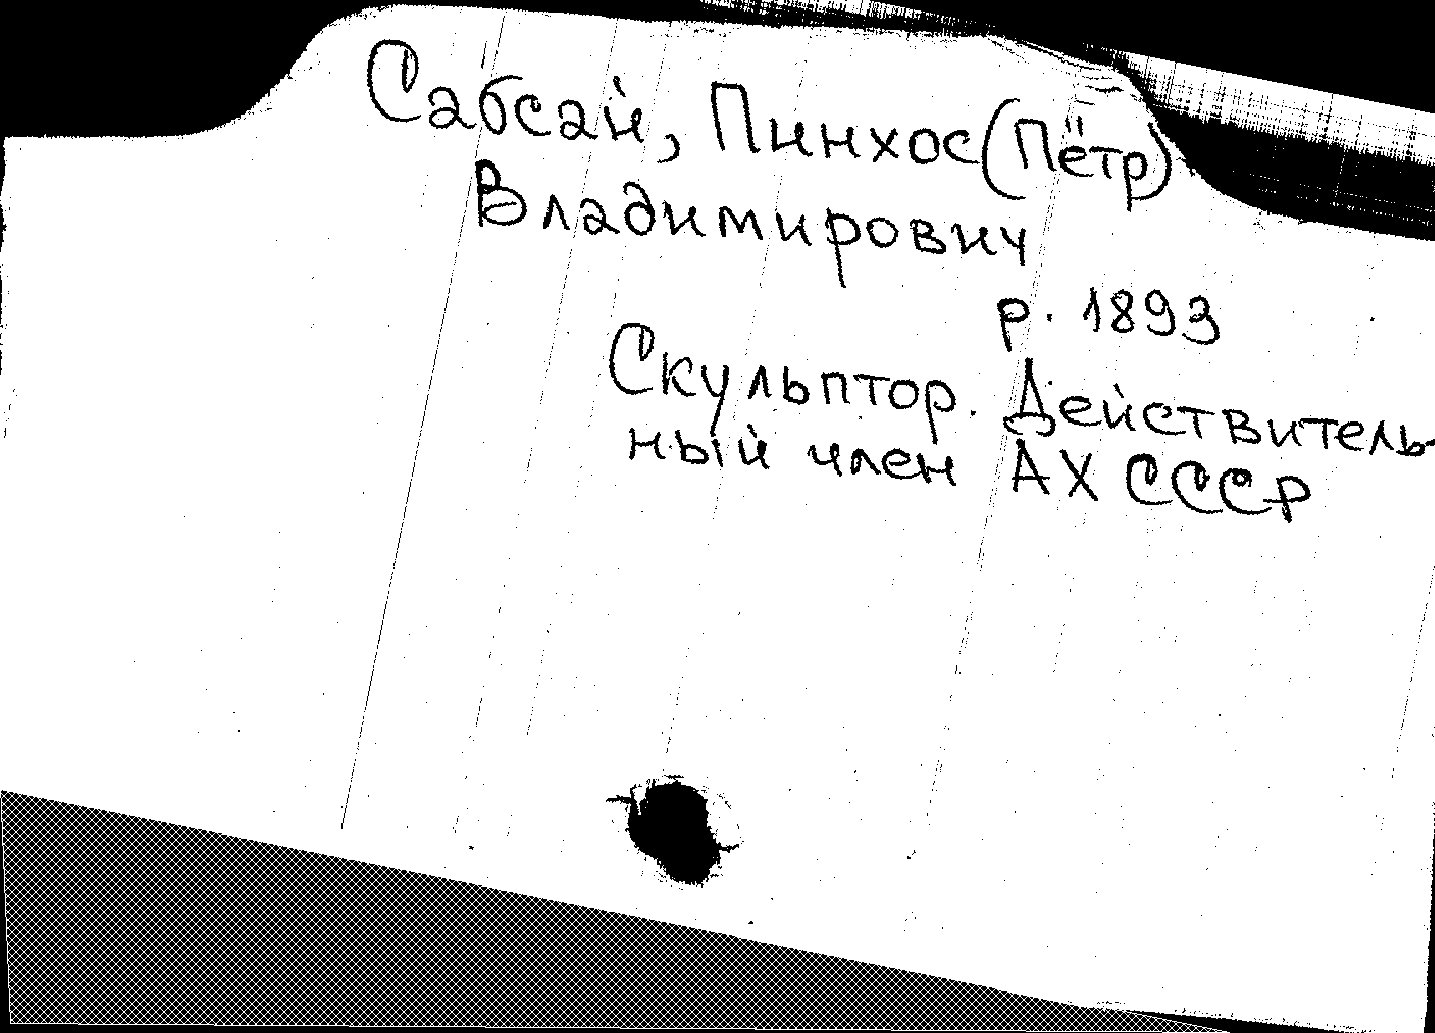 Сабсай, Пинхос (Пётр)
Владимирович
р. 1893
Скульптор. Действитель-
ный член АХ СССР